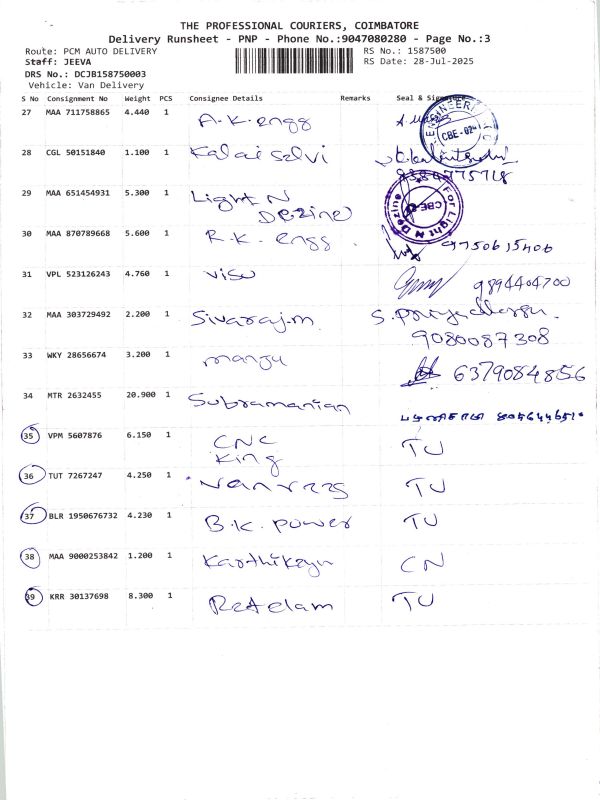 THE PROFESSIONAL COURIERS, COIMBATORE
Delivery Runsheet - PNP - Phone No.:9047080280 - Page No.:3
Route: PCM AUTO DELIVERY RS No.: 1587500
Staff: JEEVA RS Date: 28-Jul-2025
DRS No.: DCJB158750003
Vehicle: Van Delivery
S No Consignment No Weight PCS Consignee Details Remarks Seal & Signature
27 MAA 711758865 4.440 1 A.K. engg
ENGINEERI
CBE-02
28 CGL 50151840 1.100 1 Kalai selvi
29 MAA 651454931 5.300 1 Light N
Dezine
For Light N Dezine
CBE
30 MAA 870789668 5.600 1 R.K. engg. 9750615406
31 VPL 523126243 4.760 1 visu 9894404700
32 MAA 303729492 2.200 1 Sivaraj.m
9080087308
33 WKY 28656674 3.200 1 manju 6379084856
34 MTR 2632455 20.900 1 Subramanian
35 VPM 5607876 6.150 1 CNC TU
King
36 TUT 7267247 4.250 1 TU
37 BLR 1950676732 4.230 1 B.K. power TU
38 MAA 9000253842 1.200 1 Karthikeyn CN
39 KRR 30137698 8.300 1 TU